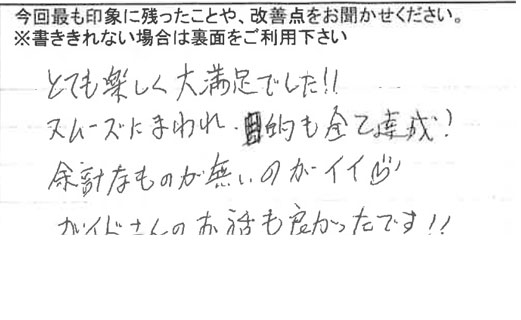 今回最も印象に残ったことや、改善点をお聞かせください。
※書ききれない場合は裏面をご利用下さい
とても楽しく大満足でした!!
スムーズにまわれ、目的も全て達成!
余計なものが無いのがイイ
ガイドさんのお話も良かったです!!